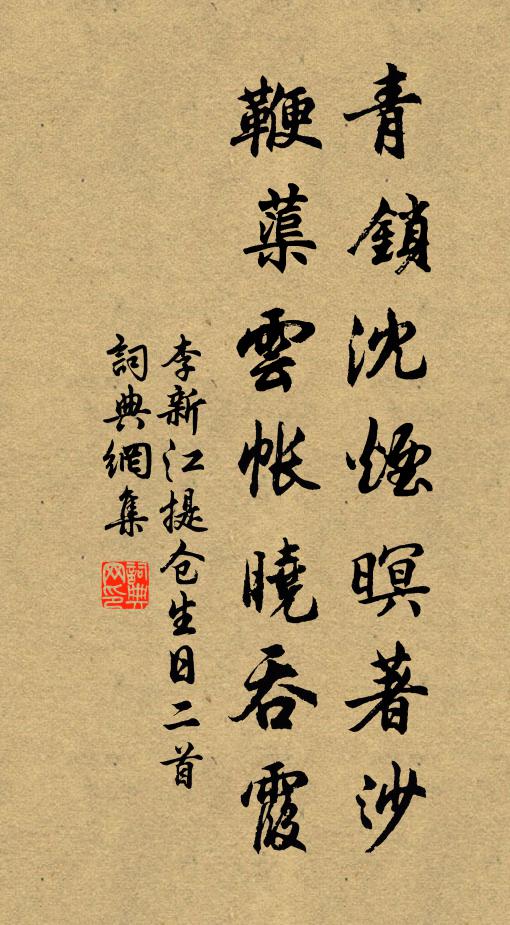 青鎖沈煙暝著沙
鞭蕖雲帳曉吞霞
李新江提仓生日二首
詞典網集
詞典网印